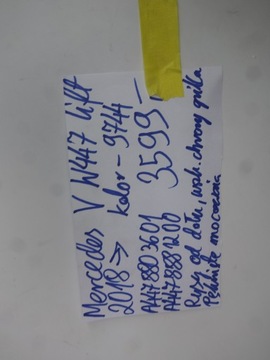 Mercedes V W447 lift
2018 → kolor - 9744
A447 880 3601 3599 -
A447 888 1200
Rysy od dołu, wok. chromy grilla
Pęknięte mocowania